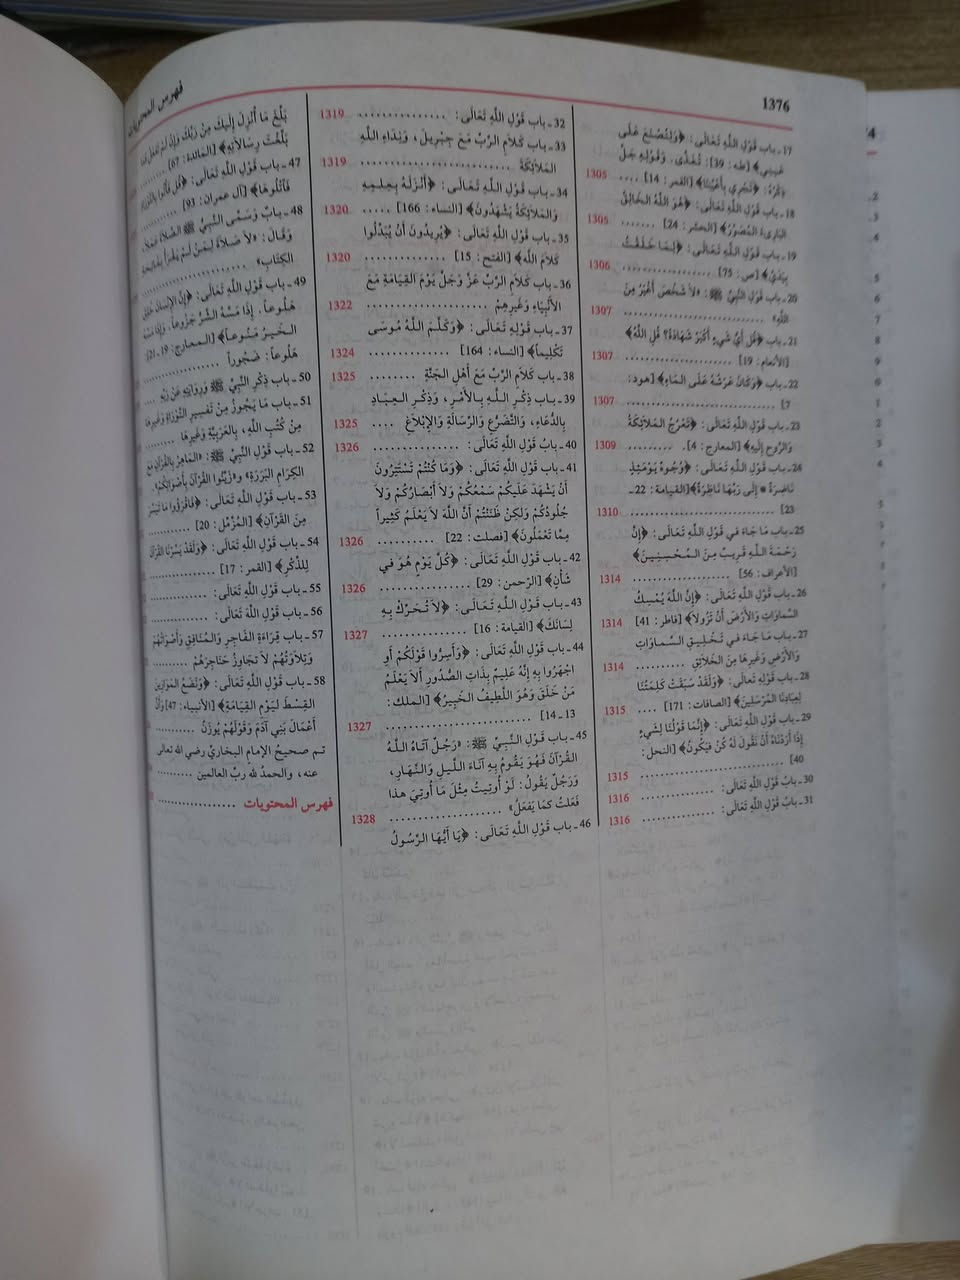 1376
فهرس المحتويات
17ـ باب قَوْلِ اللَّهِ تَعَالَى: ﴿وَلِتُصْنَعَ عَلَى
عَيْنِي﴾ [طه: 39]: تُغَذَّى. وَقَوْلِهِ جَلَّ
ذِكْرُهُ: ﴿تَجْرِي بِأَعْيُنِنَا﴾ [القمر: 14] .... 1305
18ـ باب قَوْلِ اللَّهِ تَعَالَى: ﴿هُوَ اللَّهُ الخَالِقُ
البَارِىءُ المُصَوِّرُ﴾ [الحشر: 24] ....... 1305
19ـ باب قَوْلِ اللَّهِ تَعَالَى: ﴿لِمَا خَلَقْتُ
بِيَدَيَّ﴾ [ص: 75] ................ 1306
20ـ باب قَوْلِ النَّبِيِّ ﷺ: «لاَ شَخْصَ أَغْيَرُ مِنَ
اللَّهِ» ......................... 1307
21ـ باب ﴿قُل أَيُّ شَيءٍ أَكْبَرُ شَهَادَةً؟ قُلِ اللَّهُ﴾
[الأنعام: 19] .................... 1307
22ـ باب ﴿وَكَانَ عَرْشُهُ عَلَى المَاءِ﴾ [هود:
7] ........................... 1307
23ـ باب قَوْلِ اللَّهِ تَعَالَى: ﴿تَعْرُجُ المَلاَئِكَةُ
وَالرُّوح إِلَيهِ﴾ [المعارج: 4]. ......... 1309
24ـ باب قَوْلِ اللَّهِ تَعَالَى: ﴿وُجُوهٌ يَوْمَئِذٍ
نَاضِرَةٌ * إِلَى رَبِّهَا نَاظِرَةٌ﴾ [القيامة: 22ـ
23] .......................... 1310
25ـ باب مَا جَاءَ فِي قَوْلِ اللَّهِ تَعَالَى: ﴿إِنَّ
رَحْمَةَ اللَّهِ قَرِيبٌ مِنَ المُحْسِنِينَ﴾
[الأعراف: 56] .................. 1314
26ـ باب قَوْلِ اللَّهِ تَعَالَى: ﴿إِنَّ اللَّهَ يُمْسِكُ
السَّمَاوَاتِ وَالأَرْضَ أَنْ تَزُولاَ﴾ [فاطر: 41] 1314
27ـ باب مَا جَاءَ فِي تَخْلِيقِ السَّمَاوَاتِ
وَالأَرْضِ وَغَيرِهَا مِنَ الخَلاَئِقِ ......... 1314
28ـ باب قَوْلِهِ تَعَالَى: ﴿وَلَقَدْ سَبَقَتْ كَلِمَتُنَا
لِعِبَادِنَا المُرْسَلِينَ﴾ [الصافات: 171] .... 1315
29ـ باب قَوْلِ اللَّهِ تَعَالَى: ﴿إِنَّمَا قَوْلُنَا لِشَيءٍ
إِذَا أَرَدْنَاهُ أَنْ نَقُولَ لَهُ كُنْ فَيَكُونُ﴾ [النحل:
40] .......................... 1315
30ـ بابُ قَوْلِ اللَّهِ تَعَالَى: ............ 1316
31ـ بابُ قَوْلِ اللَّهِ تَعَالَى: ............ 1316
32ـ باب قَوْلِ اللَّهِ تَعَالَى: ............... 1319
33ـ باب كَلاَمِ الرَّبِّ مَعَ جِبْرِيلَ، وَنِدَاءِ اللَّهِ
المَلاَئِكَةَ ........................ 1319
34ـ باب قَوْلِ اللَّهِ تَعَالَى: ﴿أَنْزَلَهُ بِعِلمِهِ
وَالمَلاَئِكَةُ يَشْهَدُونَ﴾ [النساء: 166] ..... 1320
35ـ باب قَوْلِ اللَّهِ تَعَالَى: ﴿يُرِيدُونَ أَنْ يُبَدِّلُوا
كَلاَمَ اللَّهِ﴾ [الفتح: 15] .............. 1320
36ـ باب كَلاَمِ الرَّبِّ عَزَّ وَجَلَّ يَوْمَ القِيَامَةِ مَعَ
الأَنْبِيَاءِ وَغَيرِهِمْ .................. 1322
37ـ باب قَوْلِهِ تَعَالَى: ﴿وَكَلَّمَ اللَّهُ مُوسَى
تَكْلِيماً﴾ [النساء: 164] ............. 1324
38ـ باب كَلاَمِ الرَّبِّ مَعَ أَهْلِ الجَنَّةِ ........ 1325
39ـ باب ذِكْرِ اللَّهِ بِالأَمْرِ، وَذِكْرِ العِبَادِ
بِالدُّعَاءِ، وَالتَّضَرُّعِ وَالرِّسَالَةِ وَالإِبْلاَغِ .... 1325
40ـ بابُ قَوْلِ اللَّهِ تَعَالَى: ............. 1326
41ـ باب قَوْلِ اللَّهِ تَعَالَى: ﴿وَمَا كُنْتُمْ تَسْتَتِرُونَ
أَنْ يَشْهَدَ عَلَيكُمْ سَمْعُكُمْ وَلاَ أَبْصَارُكُمْ وَلاَ
جُلُودُكُمْ وَلكِنْ ظَنَنْتُمْ أَنَّ اللَّهَ لاَ يَعْلَمُ كَثِيراً
مِمَّا تَعْمَلُونَ﴾ [فصلت: 22] .......... 1326
42ـ باب قَوْلِ اللَّهِ تَعَالَى: ﴿كُلَّ يَوْمٍ هُوَ فِي
شَأْنٍ﴾ [الرَّحمن: 29] ............... 1326
43ـ باب قَوْلِ اللَّهِ تَعَالَى: ﴿لاَ تُحَرِّكْ بِهِ
لِسَانَكَ﴾ [القيامة: 16] ............. 1327
44ـ باب قَوْلِ اللَّهِ تَعَالَى: ﴿وَأَسِرُّوا قَوْلَكُمْ أَوِ
اجْهَرُوا بِهِ إِنَّهُ عَلِيمٌ بِذَاتِ الصُّدُورِ أَلاَ يَعْلَمُ
مَنْ خَلَقَ وَهُوَ اللَّطِيفُ الخَبِيرُ﴾ [الملك:
13ـ 14] ...................... 1327
45ـ باب قَوْلِ النَّبِيِّ ﷺ: «رَجُلٌ آتَاهُ اللَّهُ
القُرْآنَ فَهُوَ يَقُومُ بِهِ آنَاءَ اللَّيلِ وَالنَّهَارِ،
وَرَجُلٌ يَقُولُ: لَوْ أُوتِيتُ مِثْلَ مَا أُوتِيَ هذا
فَعَلتُ كمَا يَفعَلُ» ................. 1328
46ـ باب قَوْلِ اللَّهِ تَعَالَى: ﴿يَا أَيُّهَا الرَّسُولُ
بَلِّغْ مَا أُنْزِلَ إِلَيكَ مِنْ رَبِّكَ وَإِنْ لَمْ تَفْعَل فَمَا
بَلَّغْتَ رِسَالاَتِهِ﴾ [المائدة: 67]
47ـ باب قَوْلِ اللَّهِ تَعَالَى: ﴿قُل فَأْتُوا بِالتَّوْرَاةِ
فَاتْلُوهَا﴾ [آل عمران: 93]
48ـ بابٌ وَسَمَّى النَّبِيُّ ﷺ الصَّلاَةَ عَمَلاً،
وَقَالَ: «لاَ صَلاَةَ لِمَنْ لَمْ يَقْرَأْ بِفَاتِحَةِ
الكِتَابِ» ................
49ـ باب قَوْلِ اللَّهِ تَعَالَى: ﴿إِنَّ الإِنْسَانَ خُلِقَ
هَلُوعاً. إِذَا مَسَّهُ الشَّرُّ جَزُوعاً. وَإِذَا مَسَّهُ
الخَيرُ مَنُوعاً﴾ [المعارج: 19ـ21]:
هَلُوعاً: ضَجُوراً ...........
50ـ باب ذِكْرِ النَّبِيِّ ﷺ وَرِوَايَتِهِ عَنْ رَبِّهِ
51ـ باب مَا يَجُوزُ مِنْ تَفسِيرِ التَّوْرَاةِ وَغَيرِهَا
مِنْ كُتُبِ اللَّهِ، بِالعَرَبِيَّةِ وَغَيرِهَا
52ـ باب قَوْلِ النَّبِيِّ ﷺ: «المَاهِرُ بِالقُرْآنِ مَعَ
الكِرَامِ البَرَرَةِ» وَ«زَيِّنُوا القُرْآنَ بِأَصْوَاتِكُمْ».
53ـ باب قَوْلِ اللَّهِ تَعَالَى: ﴿فَاقْرَؤُوا مَا تَيَسَّرَ
مِنَ القُرْآنِ﴾ [المُزَّمِّل: 20] .......
54ـ باب قَوْلِ اللَّهِ تَعَالَى: ﴿وَلَقَدْ يَسَّرْنَا القُرْآنَ
لِلذِّكْرِ﴾ [القمر: 17] ...........
55ـ باب قَوْلِ اللَّهِ تَعَالَى: ..........
56ـ باب قَوْلِ اللَّهِ تَعَالَى: ..........
57ـ باب قِرَاءَةِ الفَاجِرِ وَالمُنَافِقِ وَأَصْوَاتُهُمْ
وَتِلاَوَتُهُمْ لاَ تُجَاوِزُ حَنَاجِرَهُمْ ........
58ـ باب قَوْلِ اللَّهِ تَعَالَى: ﴿وَنَضَعُ المَوَازِينَ
القِسْطَ لِيَوْمِ القِيَامَةِ﴾ [الأنبياء: 47] وَأَنَّ
أَعْمَالَ بَنِي آدَمَ وَقَوْلَهُمْ يُوزَنُ ........
تم صحيحُ الإمامِ البخاريِّ رضي الله تعالى
عنه، والحمدُ لله ربِّ العالمين .........
فهرس المحتويات ................